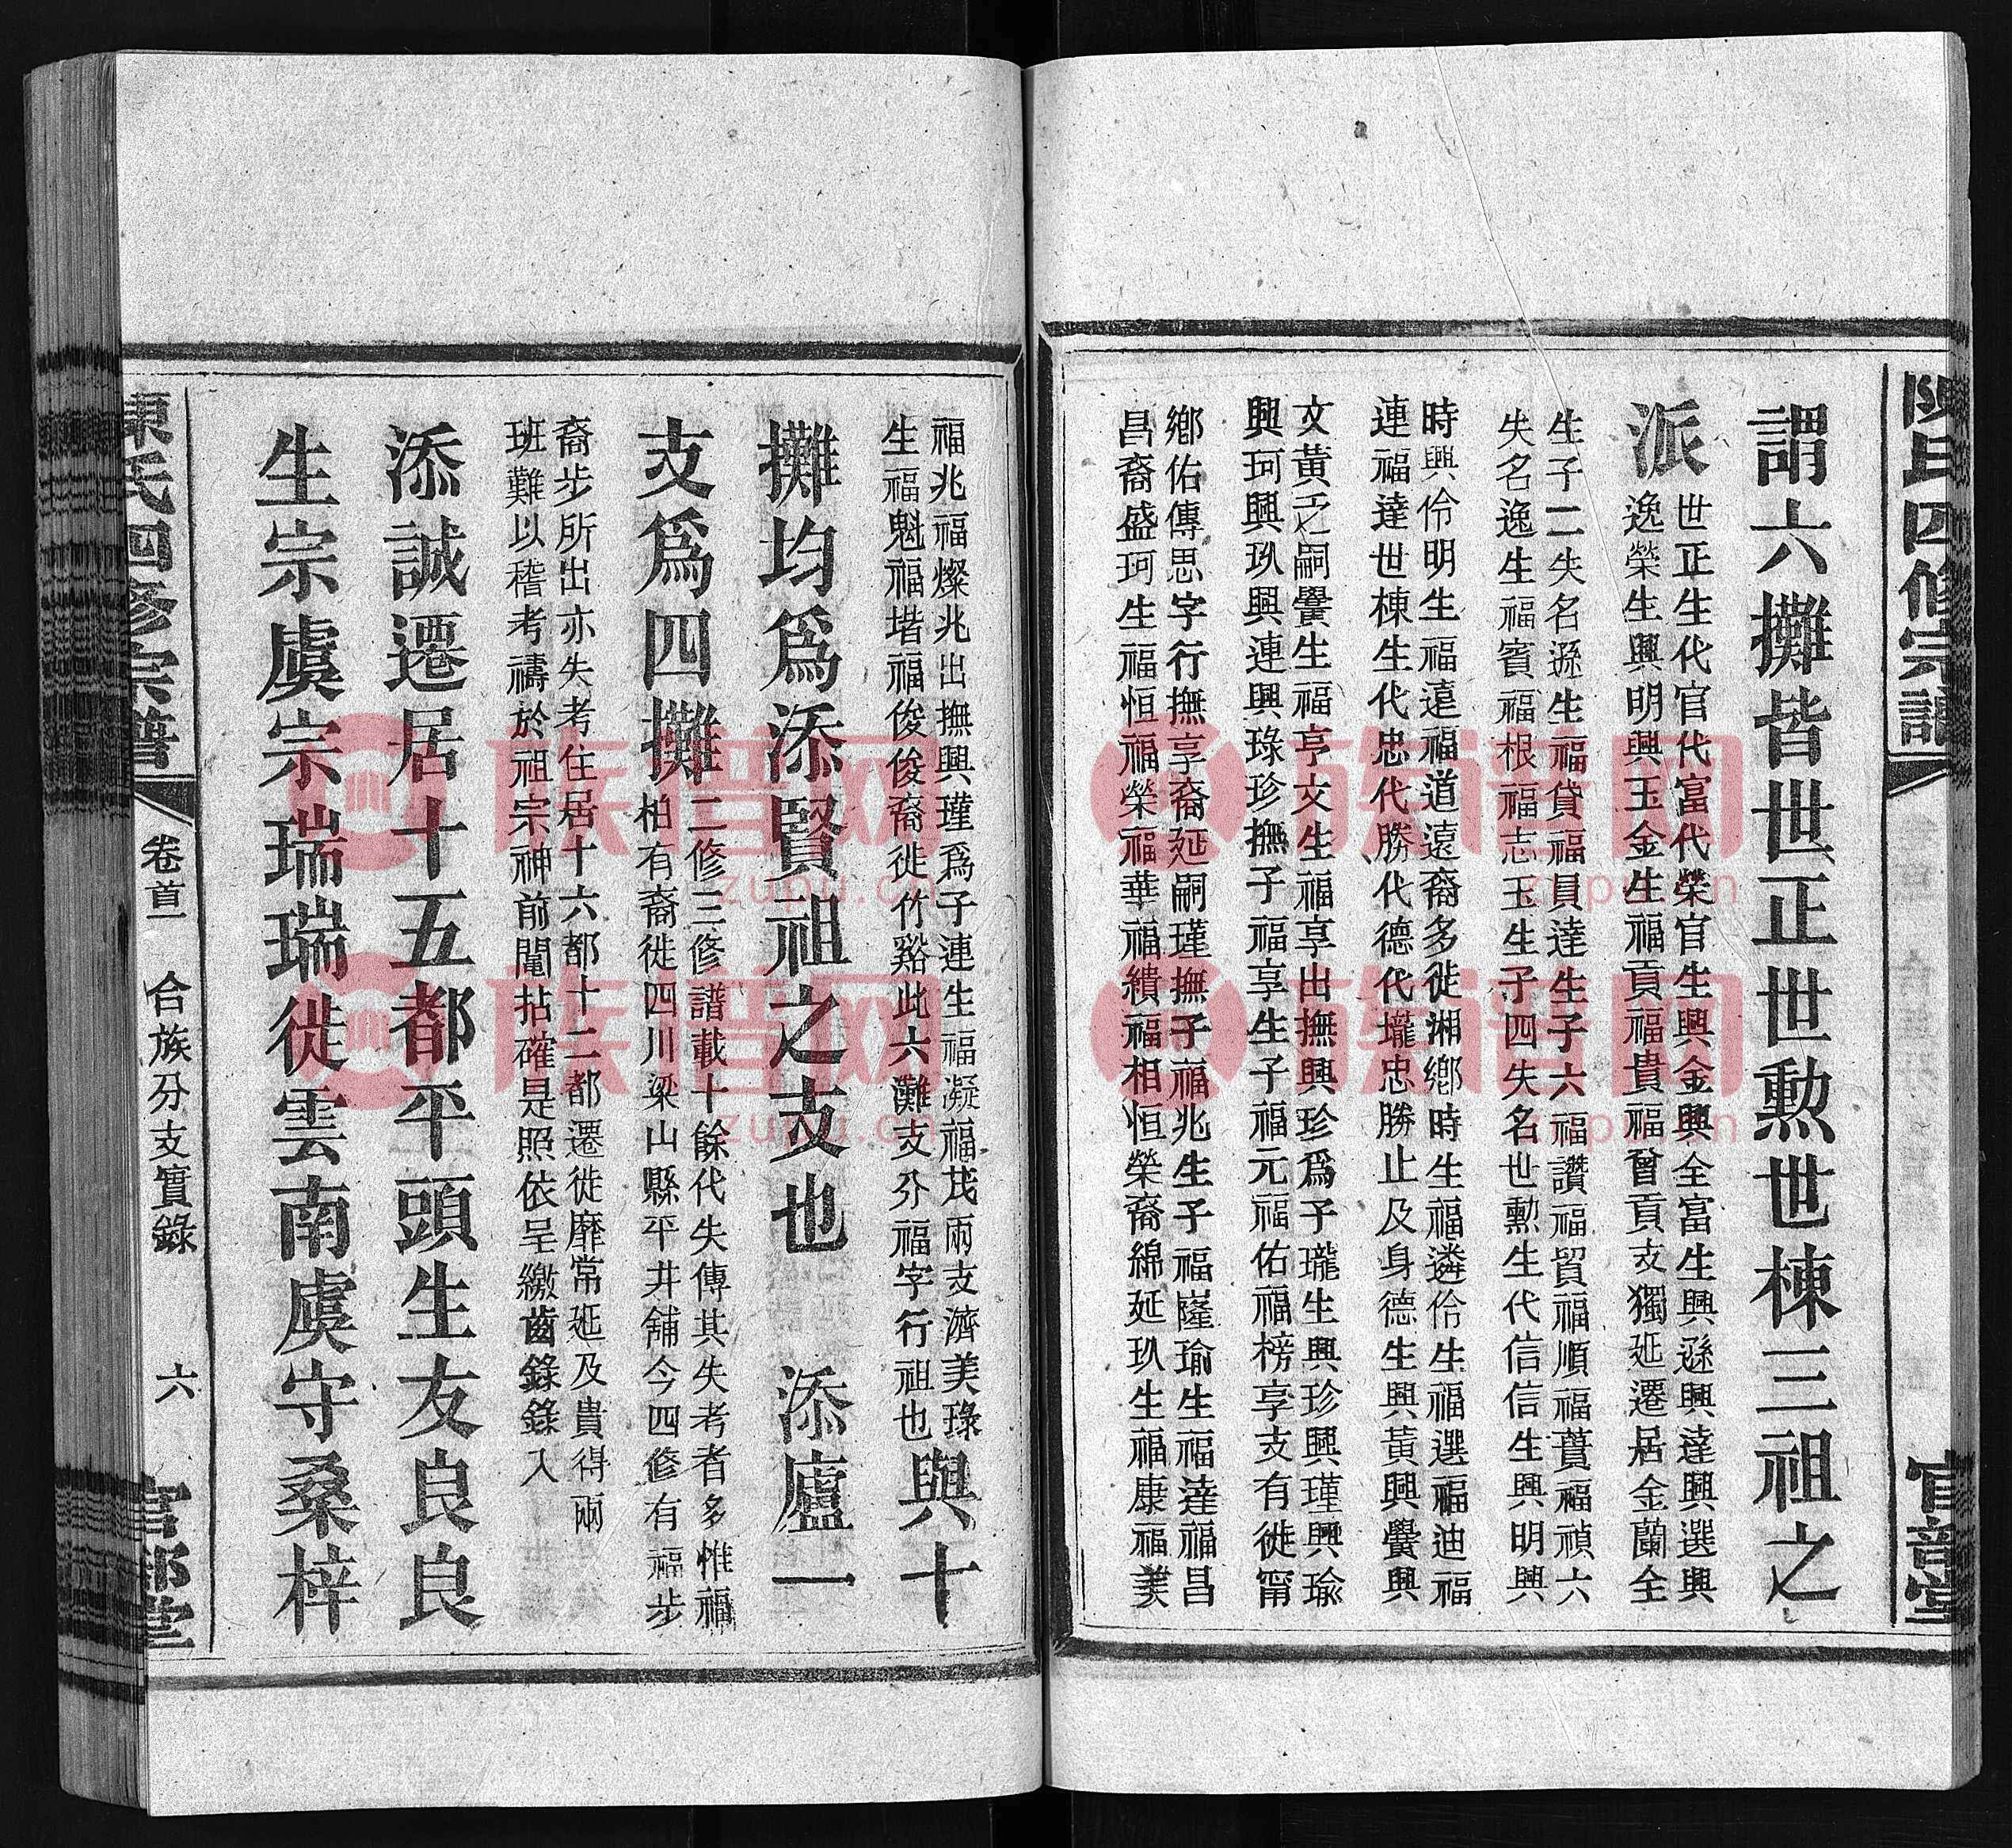 陳氏四修宗譜
官部堂
謂六攤皆世正世勲世棟三祖之
派
世正生代官代富代榮官生興金興全富生興遜興達興選興
逸榮生興明興玉金生福貢福貴福曾貢支獨延遷居金蘭全
生子二失名遜生福貸福員達生子六福讚福貿福順福蕢福禎六
失名逸生福賓福根福志玉生子四失名世勲生代信信生興明興
時興伶明生福遠福道遠裔多徙湘鄉時生福遴伶生福選福迪福
連福達世棟生代忠代勝代德代壠忠勝止及身德生興黃興黌興
文黃乏嗣黌生福亨文生福享出撫興珍爲子瓏生興珍興瑾興瑜
興珂興玖興連興琭珍撫子福享生子福元福佑福榜享支有徙甯
鄉佑傳思字行撫享裔延嗣瑾撫子福兆生子福嶐瑜生福達福昌
昌裔盛珂生福恒福榮福華福績福相恒榮裔綿延玖生福康福美
福兆福燦兆出撫興瑾爲子連生福凝福茂兩支濟美琭
生福魁福堦福俊俊裔徙竹谿此六灘支分福字行祖也
與十
攤均爲添賢祖之支也 添廬一
支爲四攤
二修三修譜載十餘代失傳其失考者多惟福
柏有裔徙四川梁山縣平井舖今四修有福步
裔步所出亦失考住居十六都十二都遷徙靡常延及貴得兩
班難以稽考禱於祖宗神前鬮拈確是照依呈繳齒錄錄入
添誠遷居十五都平頭生友良良
生宗虞宗瑞瑞徙雲南虞守桑梓
陳氏四修宗譜
卷首一 合族分支實錄 六
官部堂
族譜网
zupu.cn
族譜网
zupu.cn
族譜网
zupu.cn
族譜网
zupu.cn